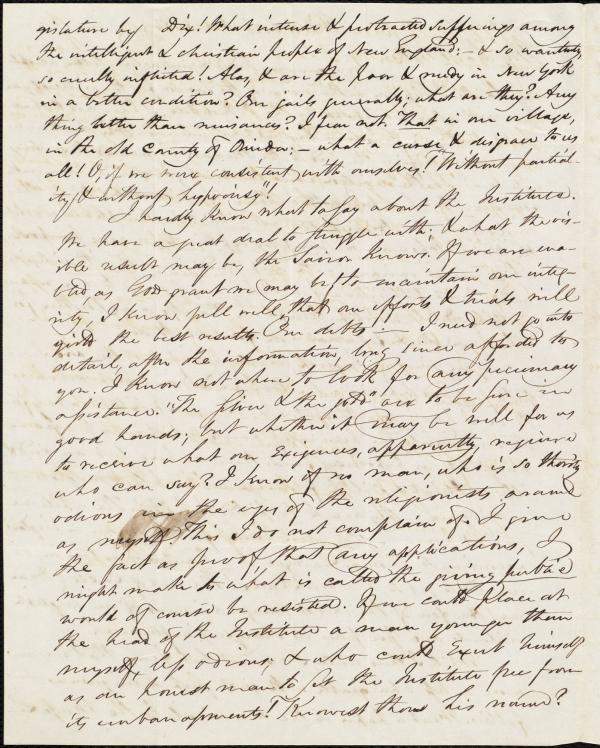 gislature by Dix! What intense & protracted sufferings among
the intelligent & christian people of New England; – & so wantonly,
so cruelly inflicted! Alas, & are the poor & needy in New York
in a better condition? Our jails generally; what are they? Any
thing better than nuisances? I fear not. That in our village,
in the old county of Oneida; – what a curse & disgrace to us
all! O, if we were consistent with ourselves! "Without partial-
ity & without hypocrisy"!
I hardly know what to say about the Institute.
We have a great deal to struggle with; & what the vis-
ible result may be, the Savior knows. If we are ena-
bled, as God grant we may be, to maintain our integ-
rity, I know full well, that our efforts & trials will
yield the best results. Our debts – I need not go into
detail, after the information, long since afforded to
you. I know not where to look for any pecuniary
assistance. "The silver & the gold" are to be sure in
good hands; but whether it may be well for us
to receive what our exigences, apparently require
who can say? I know of no man, who is so thor'ly
odious in the eyes of the religionists around
as myself. This I do not complain of. I give
the fact as proof that any applications, I
might make to what is called the giving public
would of course be resisted. If we could place at
the head of the Institute a man younger than
myself, less odious; & who could exert himself
as an honest man to set the Institute free from
its embarrassments! Knowest thou his name?